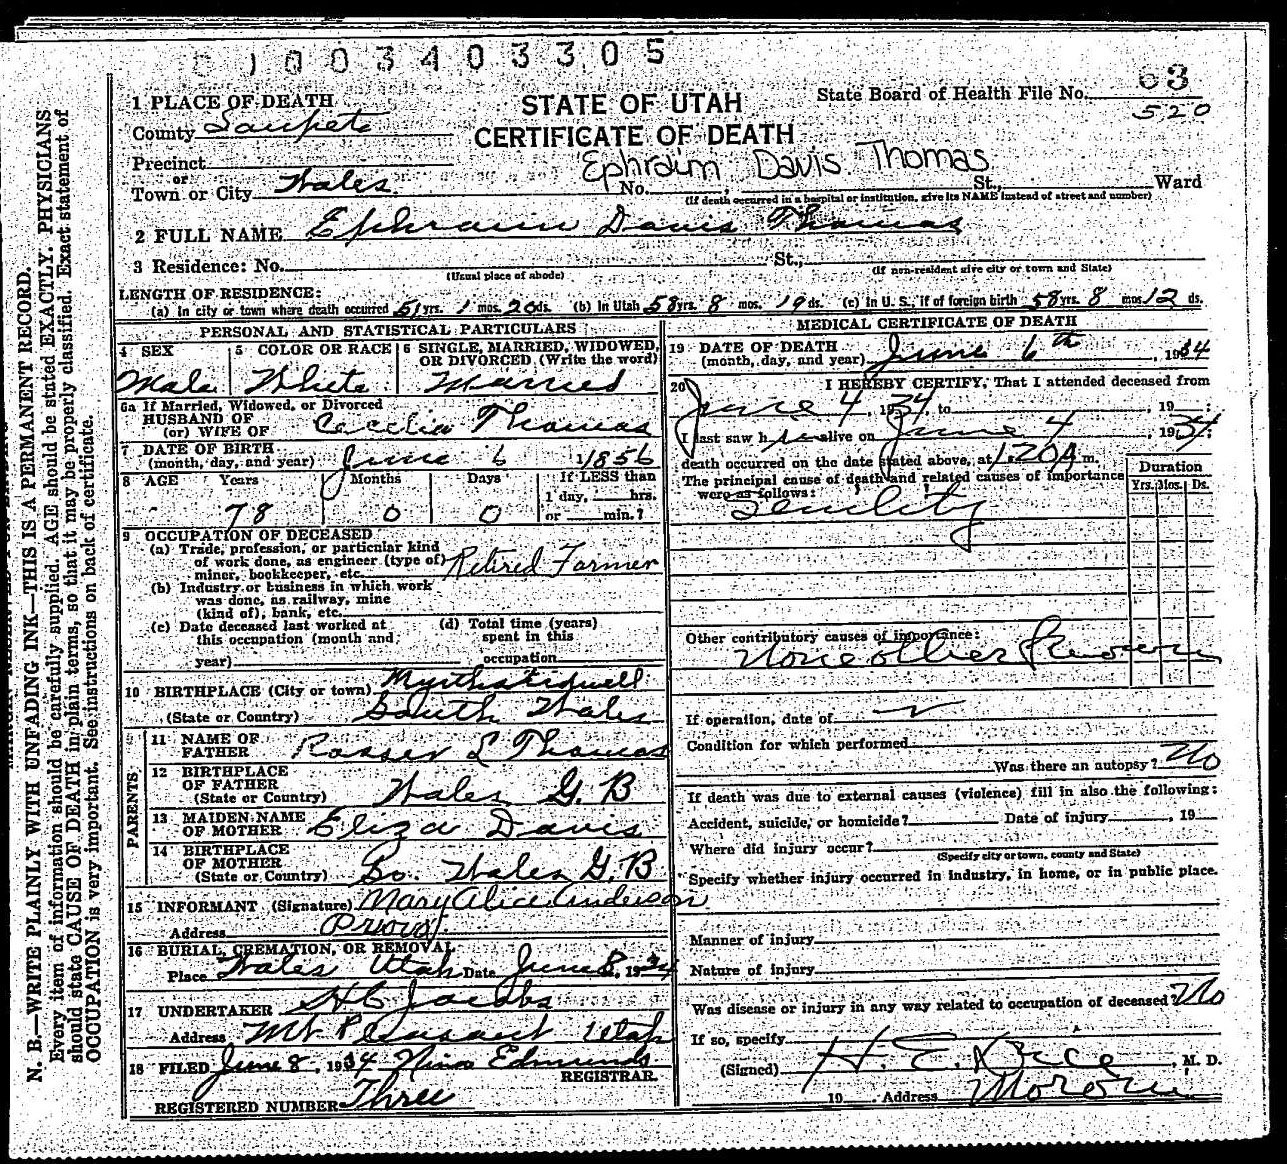 1003403305
63
1 PLACE OF DEATH
STATE OF UTAH
State Board of Health File No.
520
County Sanpete
CERTIFICATE OF DEATH
Precinct
Ephraim Davis Thomas
or
Town or City Wales No. , St., Ward
(If death occurred in a hospital or institution, give its NAME instead of street and number)
2 FULL NAME Ephraim Davis Thomas
3 Residence: No. St.,
(Usual place of abode) (If non-resident give city or town and State)
LENGTH OF RESIDENCE:
(a) In city or town where death occurred 51 yrs. 1 mos. 20 ds. (b) In Utah 58 yrs. 8 mos. 19 ds. (c) in U. S., if of foreign birth 58 yrs. 8 mos 12 ds.
PERSONAL AND STATISTICAL PARTICULARS
4 SEX 5 COLOR OR RACE 6 SINGLE, MARRIED, WIDOWED, OR DIVORCED (Write the word)
Male White Married
6a If Married, Widowed, or Divorced
HUSBAND OF
(or) WIFE OF Cecelia Thomas
7 DATE OF BIRTH
(month, day, and year) June 6 1856
8 AGE Years Months Days If LESS than
1 day, hrs.
78 0 0 or min.?
9 OCCUPATION OF DECEASED
(a) Trade, profession, or particular kind
of work done, as engineer (type of)
miner, bookkeeper, etc. Retired Farmer
(b) Industry or business in which work
was done, as railway, mine
(kind of), bank, etc.
(c) Date deceased last worked at
this occupation (month and
year)
(d) Total time (years)
spent in this
occupation
10 BIRTHPLACE (City or town)
(State or Country) South Wales
PARENTS
11 NAME OF
FATHER Rosser L Thomas
12 BIRTHPLACE
OF FATHER
(State or Country) Wales G. B
13 MAIDEN NAME
OF MOTHER Eliza Davis
14 BIRTHPLACE
OF MOTHER
(State or Country) So. Wales G. B
15 INFORMANT (Signature) Mary Alice Anderson
Address Provo
16 BURIAL, CREMATION, OR REMOVAL
Place Wales Utah Date June 8, 1934
17 UNDERTAKER H C Jacobs
Address Mt Pleasant Utah
18 FILED June 8, 1934 Nina Edmunds
REGISTRAR.
REGISTERED NUMBER Three
MEDICAL CERTIFICATE OF DEATH
19 DATE OF DEATH
(month, day, and year) June 6th, 1934
20 I HEREBY CERTIFY, That I attended deceased from
June 4, 1934, to , 19 :
I last saw him alive on June 4, 1934:
death occurred on the date stated above, at 1:20A m.
The principal cause of death and related causes of importance
were as follows:
Duration
Yrs. Mos. Ds.
Senility
Other contributory causes of importance:
None other Known
If operation, date of
Condition for which performed
Was there an autopsy? No
If death was due to external causes (violence) fill in also the following:
Accident, suicide, or homicide? Date of injury , 19
Where did injury occur?
(Specify city or town, county and State)
Specify whether injury occurred in industry, in home, or in public place.
Manner of injury
Nature of injury
Was disease or injury in any way related to occupation of deceased? No
If so, specify
(Signed) H. E. Dice, M. D.
19 . Address Moroni
N. B.—WRITE PLAINLY WITH UNFADING INK—THIS IS A PERMANENT RECORD.
Every item of information should be carefully supplied. AGE should be stated EXACTLY. PHYSICIANS
should state CAUSE OF DEATH in plain terms, so that it may be properly classified. Exact statement of
OCCUPATION is very important. See instructions on back of certificate.